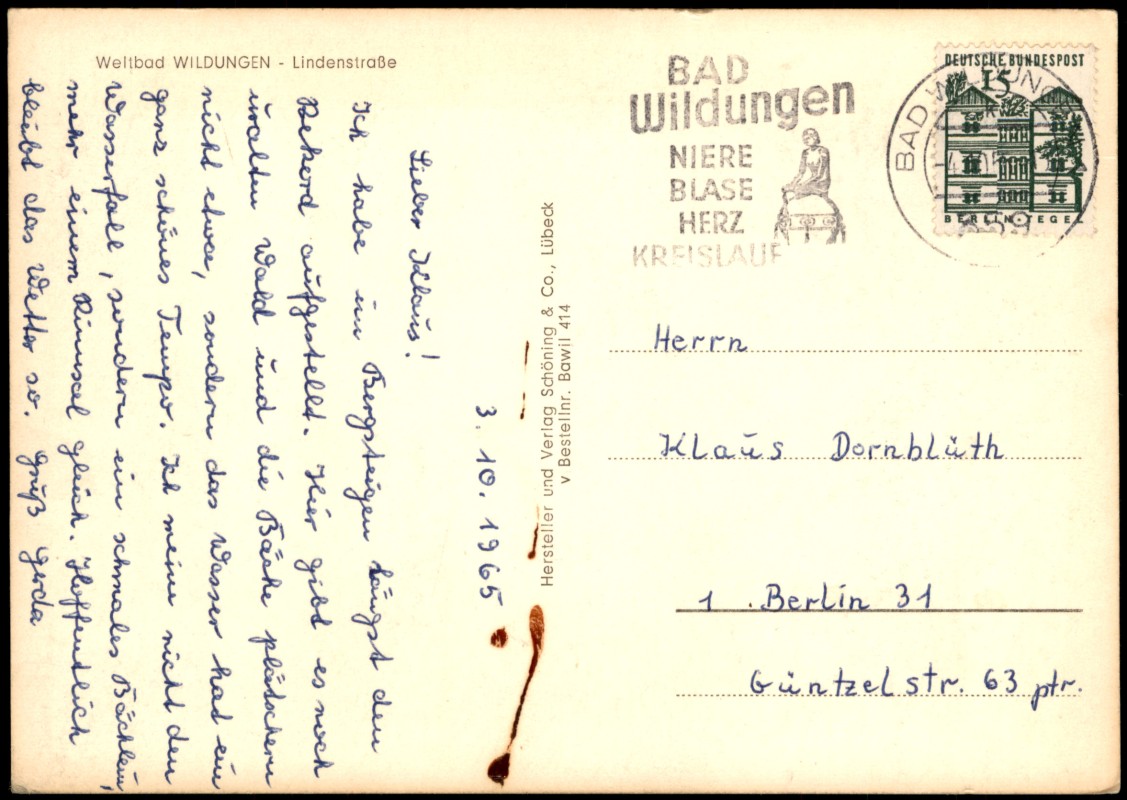 Weltbad WILDUNGEN - Lindenstraße
3. 10. 1965
Lieber Klaus!
Ich habe im Bergsteigen längst den
Rekord aufgestellt. Hier gibt es noch
uralten Wald und die Bäche plätschern
nicht etwa, sondern das Wasser hat ein
ganz schönes Tempo. Ich meine nicht den
Wasserfall, sondern ein schmales Bächlein,
mehr einem Rinnsal gleich. Hoffentlich
bleibt das Wetter so. Gruß Gerda
Hersteller und Verlag Schöning & Co., Lübeck
v Bestellnr. Bawil 414
BAD
Wildungen
NIERE
BLASE
HERZ
KREISLAUF
BAD WILDUNGEN
DEUTSCHE BUNDESPOST
15
BERLIN-TEGEL
Herrn
Klaus Dornblüth
1 Berlin 31
Güntzelstr. 63 ptr.